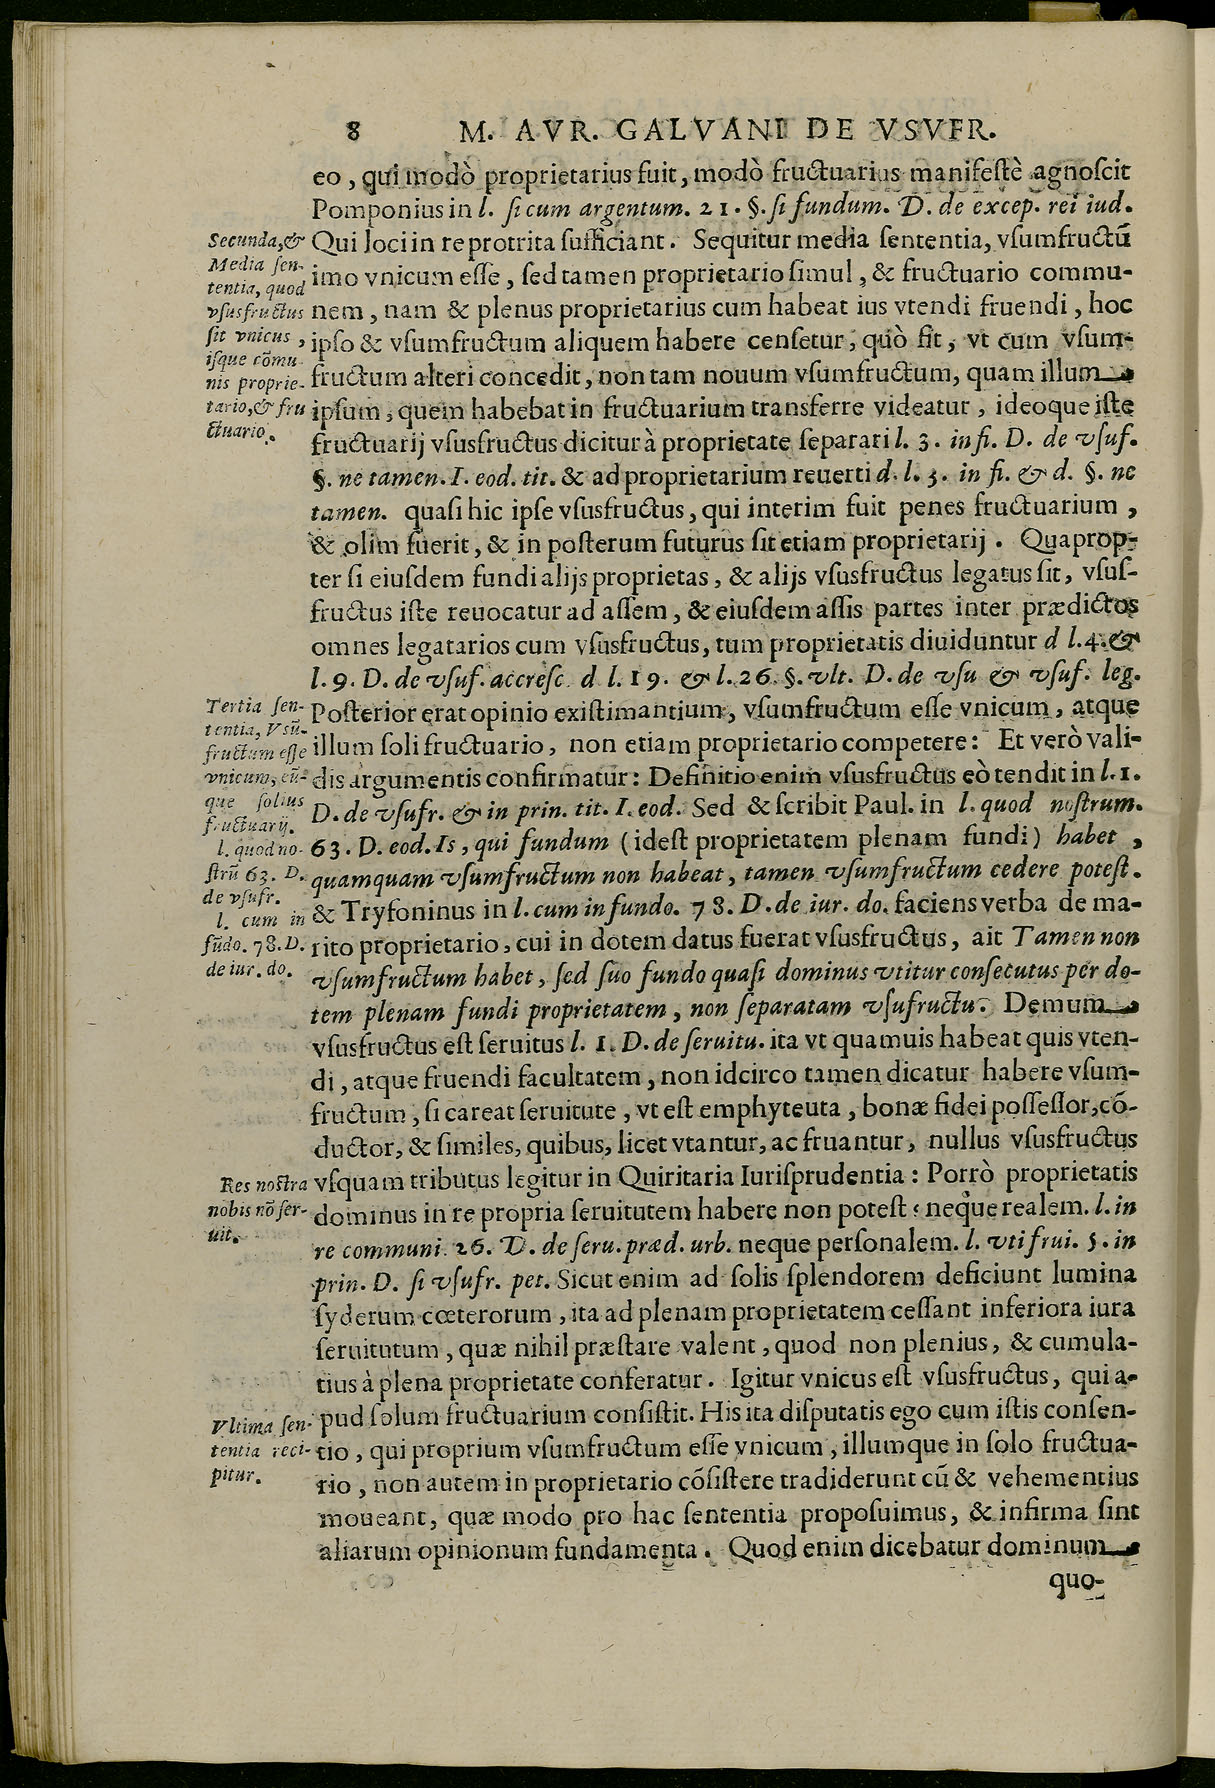 8 M. AVR. GALVANI DE VSVFR.
eo, qui modò proprietarius fuit, modò fructuarius manifeſtè agnoſcit
Pomponius in l. ſi cum argentum. 21. §. ſi fundum. D. de excep. rei iud.
Qui loci in re protrita ſufficiant. Sequitur media ſententia, vſumfructū
imo vnicum eſſe, ſed tamen proprietario ſimul, & fructuario commu-
nem, nam & plenus proprietarius cum habeat ius vtendi fruendi, hoc
ipſo & vſumfructum aliquem habere cenſetur, quò fit, vt cum vſum-
fructum alteri concedit, non tam nouum vſumfructum, quam illum
ipſum, quem habebat in fructuarium transferre videatur, ideoque iſte
fructuarij vſusfructus dicitur à proprietate ſeparari l. 3. in fi. D. de vſuf.
§. ne tamen. I. eod. tit. & ad proprietarium reuerti d. l. 3. in fi. & d. §. ne
tamen. quaſi hic ipſe vſusfructus, qui interim fuit penes fructuarium,
& olim fuerit, & in poſterum futurus ſit etiam proprietarij. Quaprop-
ter ſi eiuſdem fundi alijs proprietas, & alijs vſusfructus legatus ſit, vſuſ-
fructus iſte reuocatur ad aſſem, & eiuſdem aſſis partes inter prædictos
omnes legatarios cum vſusfructus, tum proprietatis diuiduntur d l. 4. &
l. 9. D. de vſuf. accreſc. d l. 19. & l. 26. §. vlt. D. de vſu & vſuf. leg.
Poſterior erat opinio exiſtimantium, vſumfructum eſſe vnicum, atque
illum ſoli fructuario, non etiam proprietario competere: Et verò vali-
dis argumentis confirmatur: Definitio enim vſusfructus eò tendit in l. 1.
D. de vſufr. & in prin. tit. I. eod. Sed & ſcribit Paul. in l. quod noſtrum.
63. D. eod. Is, qui fundum (ideſt proprietatem plenam fundi) habet,
quamquam vſumfructum non habeat, tamen vſumfructum cedere poteſt.
& Tryfoninus in l. cum in fundo. 78. D. de iur. do. faciens verba de ma-
rito proprietario, cui in dotem datus fuerat vſusfructus, ait Tamen non
vſumfructum habet, ſed ſuo fundo quaſi dominus vtitur conſecutus per do-
tem plenam fundi proprietatem, non ſeparatam vſufructu. Demum
vſusfructus eſt ſeruitus l. 1. D. de ſeruitu. ita vt quamuis habeat quis vten-
di, atque fruendi facultatem, non idcirco tamen dicatur habere vſum-
fructum, ſi careat ſeruitute, vt eſt emphyteuta, bonæ fidei poſſeſſor, cō-
ductor, & ſimiles, quibus, licet vtantur, ac fruantur, nullus vſusfructus
vſquam tributus legitur in Quiritaria Iuriſprudentia: Porrò proprietatis
dominus in re propria ſeruitutem habere non poteſt: neque realem. l. in
re communi. 26. D. de ſeru. præd. urb. neque perſonalem. l. vti frui. 5. in
prin. D. ſi vſufr. pet. Sicut enim ad ſolis ſplendorem deficiunt lumina
ſyderum cœterorum, ita ad plenam proprietatem ceſſant inferiora iura
ſeruitutum, quæ nihil præſtare valent, quod non plenius, & cumula-
tius à plena proprietate conferatur. Igitur vnicus eſt vſusfructus, qui a-
pud ſolum fructuarium conſiſtit. His ita diſputatis ego cum iſtis conſen-
tio, qui proprium vſumfructum eſſe vnicum, illumque in ſolo fructua-
rio, non autem in proprietario cōſiſtere tradiderunt cū & vehementius
moueant, quæ modo pro hac ſententia propoſuimus, & infirma ſint
aliarum opinionum fundamenta. Quod enim dicebatur dominum
quo-
Secunda, &
Media ſen-
tentia, quod
vſusfructus
ſit vnicus,
iſque cōmu
nis proprie-
tario, & fru
ctuario.
Tertia ſen-
tentia, Vsū-
fructum eſſe
vnicum, eū-
que ſolius
fructuarij.
l. quod no-
ſtrū 63. D.
de vſufr.
l. cum in
fūdo. 78. D.
de iur. do.
Res noſtra
nobis nō ſer-
uit.
Vltima ſen-
tentia reci-
pitur.